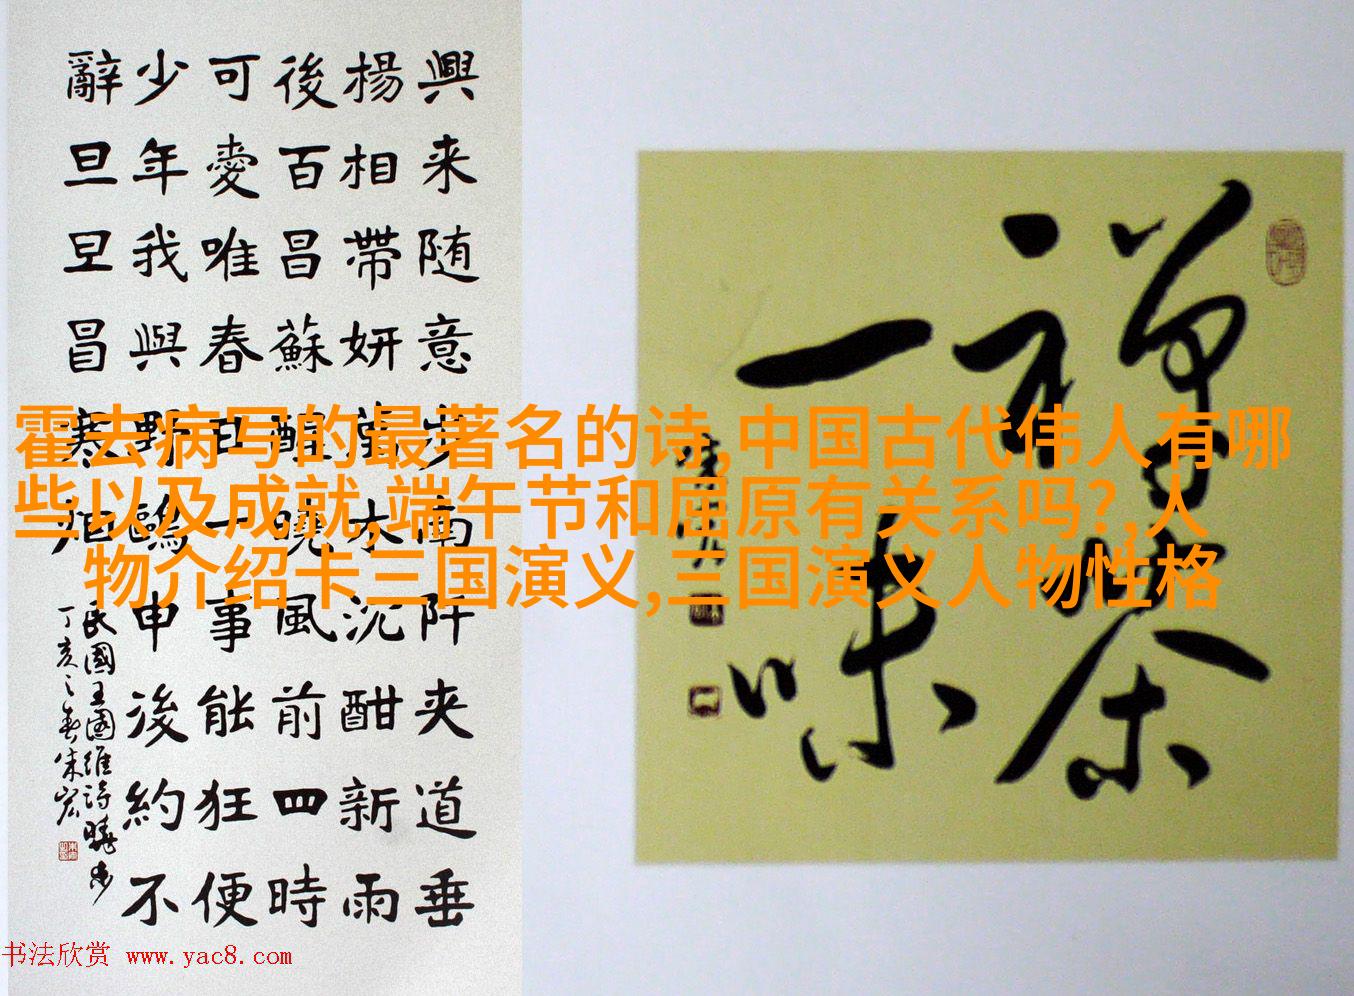 興来随意步南阡夹道垂
楊相帶妍萬木沈酣新雨
後百昌蘇醒曉風前四時
可愛唯春日一事能狂便
少年我與野鷗申後約不
辭旦旦冒寒烟
民國王國維詩曉步
丁亥之春朱宏
禅茶
一味
霍去病写的最著名的诗,中国古代伟人有哪
些以及成就,端午节和屈原有关系吗?,人
物介绍卡三国演义,三国演义人物性格
书法欣赏 www.yac8.com